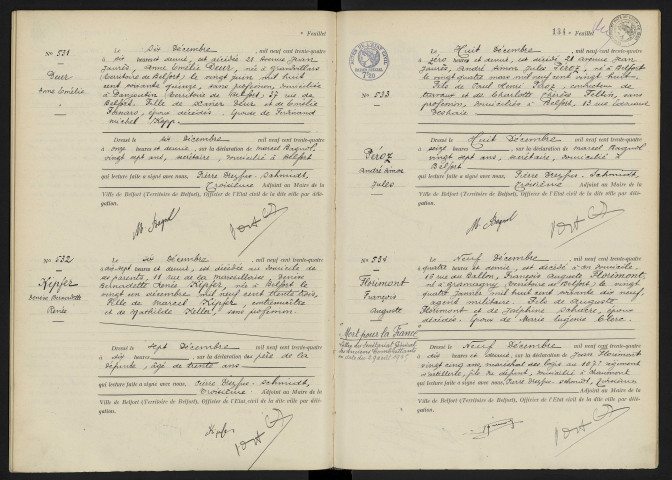 Feuillet
N° 531
Deur
Anne Emélie
Le six Décembre, mil neuf cent trente-quatre
à six heures et demie, est décédée 21 Avenue Jean
Jaurès, Anne Emélie Deur, née à Grandvillars
(Territoire de Belfort), le vingt juin mil huit
cent soixante quinze, sans profession, domiciliée
à Danjoutin (Territoire de Belfort), 57 rue de
Belfort. Fille de Xavier Deur et de Emélie
époux décédés. Epouse de Fernand
Michel Rapp.
Dressé le six Décembre, mil neuf cent trente-quatre
à onze heures et demie, sur la déclaration de Marcel Bagnol
vingt sept ans, secrétaire, domicilié à Belfort
qui lecture faite a signé avec nous, Pierre Dreyfus-Schmidt,
troisième Adjoint au Maire de la
Ville de Belfort (Territoire de Belfort), Officier de l'Etat civil de la dite ville par délé-
gation.
M. Bagnol
N° 532
Kipfer
Denise Bernadette
Renée
Le six Décembre, mil neuf cent trente-quatre
à dix-sept heures et demie, est décédée au domicile de
ses parents, 11 rue de la Marseillaise, Denise
Bernadette Renée Kipfer, née à Belfort le
vingt un décembre mil neuf cent trente trois,
Fille de Marcel Kipfer, contremaître
et de Mathilde Keller, sans profession.
Dressé le sept Décembre, mil neuf cent trente-quatre
à dix heures, sur la déclaration du père de la
défunte, âgé de trente ans
qui lecture faite a signé avec nous, Pierre Dreyfus-Schmidt,
troisième Adjoint au Maire de la
Ville de Belfort (Territoire de Belfort), Officier de l'Etat civil de la dite ville par délé-
gation.
Kipfer
134
Feuillet
N° 533
Péroz
André Simon
Jules
Le Huit Décembre, mil neuf cent trente-quatre
à zéro heures et demie, est décédé 21 Avenue Jean
Jaurès, André Simon Jules Péroz, né à Belfort
le vingt quatre mars mil neuf cent vingt huit.
Fils de Paul Henri Péroz, conducteur de
travaux et de Charlotte Thérèse Feltin, sans
profession, domiciliés à Belfort, 13 rue Edouard
Dressé le Huit Décembre, mil neuf cent trente-quatre
à seize heures et demie, sur la déclaration de Marcel Bagnol
vingt sept ans, secrétaire, domicilié à
Belfort
qui lecture faite a signé avec nous, Pierre Dreyfus-Schmidt,
troisième Adjoint au Maire de la
Ville de Belfort (Territoire de Belfort), Officier de l'Etat civil de la dite ville par délé-
gation.
M. Bagnol
N° 534
Florimont
François
Auguste
"Mort pour la France"
Le Neuf Décembre, mil neuf cent trente-quatre
à quatre heures et demie, est décédé en son domicile,
16 rue du Ballon, François Auguste Florimont,
né à Giromagny (Territoire de Belfort), le vingt
quatre janvier mil huit cent soixante dix neuf,
agent militaire. Fils de Auguste
Florimont et de Joséphine, époux
décédés. Epoux de Marie Eugénie Clerc.
Dressé le Neuf Décembre, mil neuf cent trente-quatre
à dix heures et demie, sur la déclaration de Jean Florimont
vingt cinq ans, maréchal des logis au régiment
d'artillerie, fils du défunt, domicilié à Chaumont
qui lecture faite a signé avec nous, Pierre Dreyfus-Schmidt, troisième
Adjoint au Maire de la
Ville de Belfort (Territoire de Belfort), Officier de l'Etat civil de la dite ville par délé-
gation.